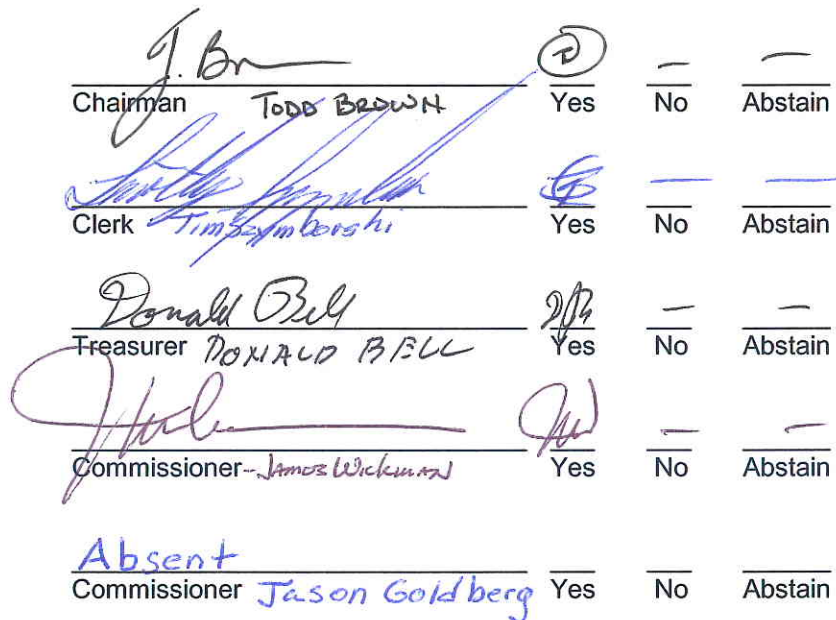 J. Br — —
Chairman TODD BROWN Yes No Abstain
— —
Clerk Tim Szymborski Yes No Abstain
Donald Bell DB — —
Treasurer DONALD BELL Yes No Abstain
JW — —
Commissioner-JAMES WICKMAN Yes No Abstain
Absent
Commissioner Jason Goldberg Yes No Abstain